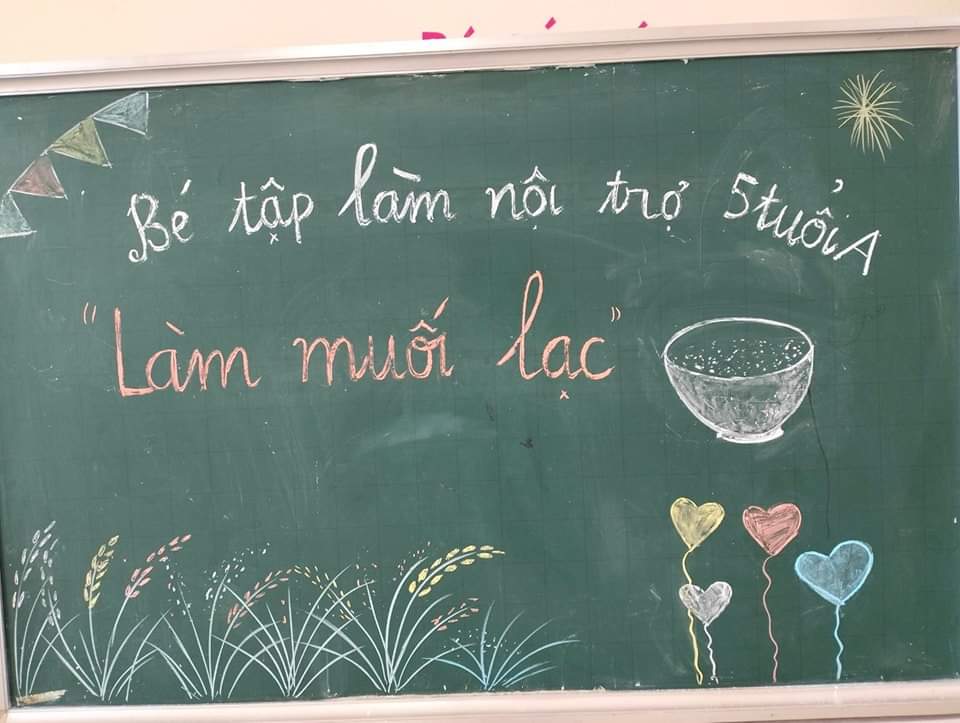 Bé tập làm nội trợ 5 tuổi A
"Làm muối lạc"